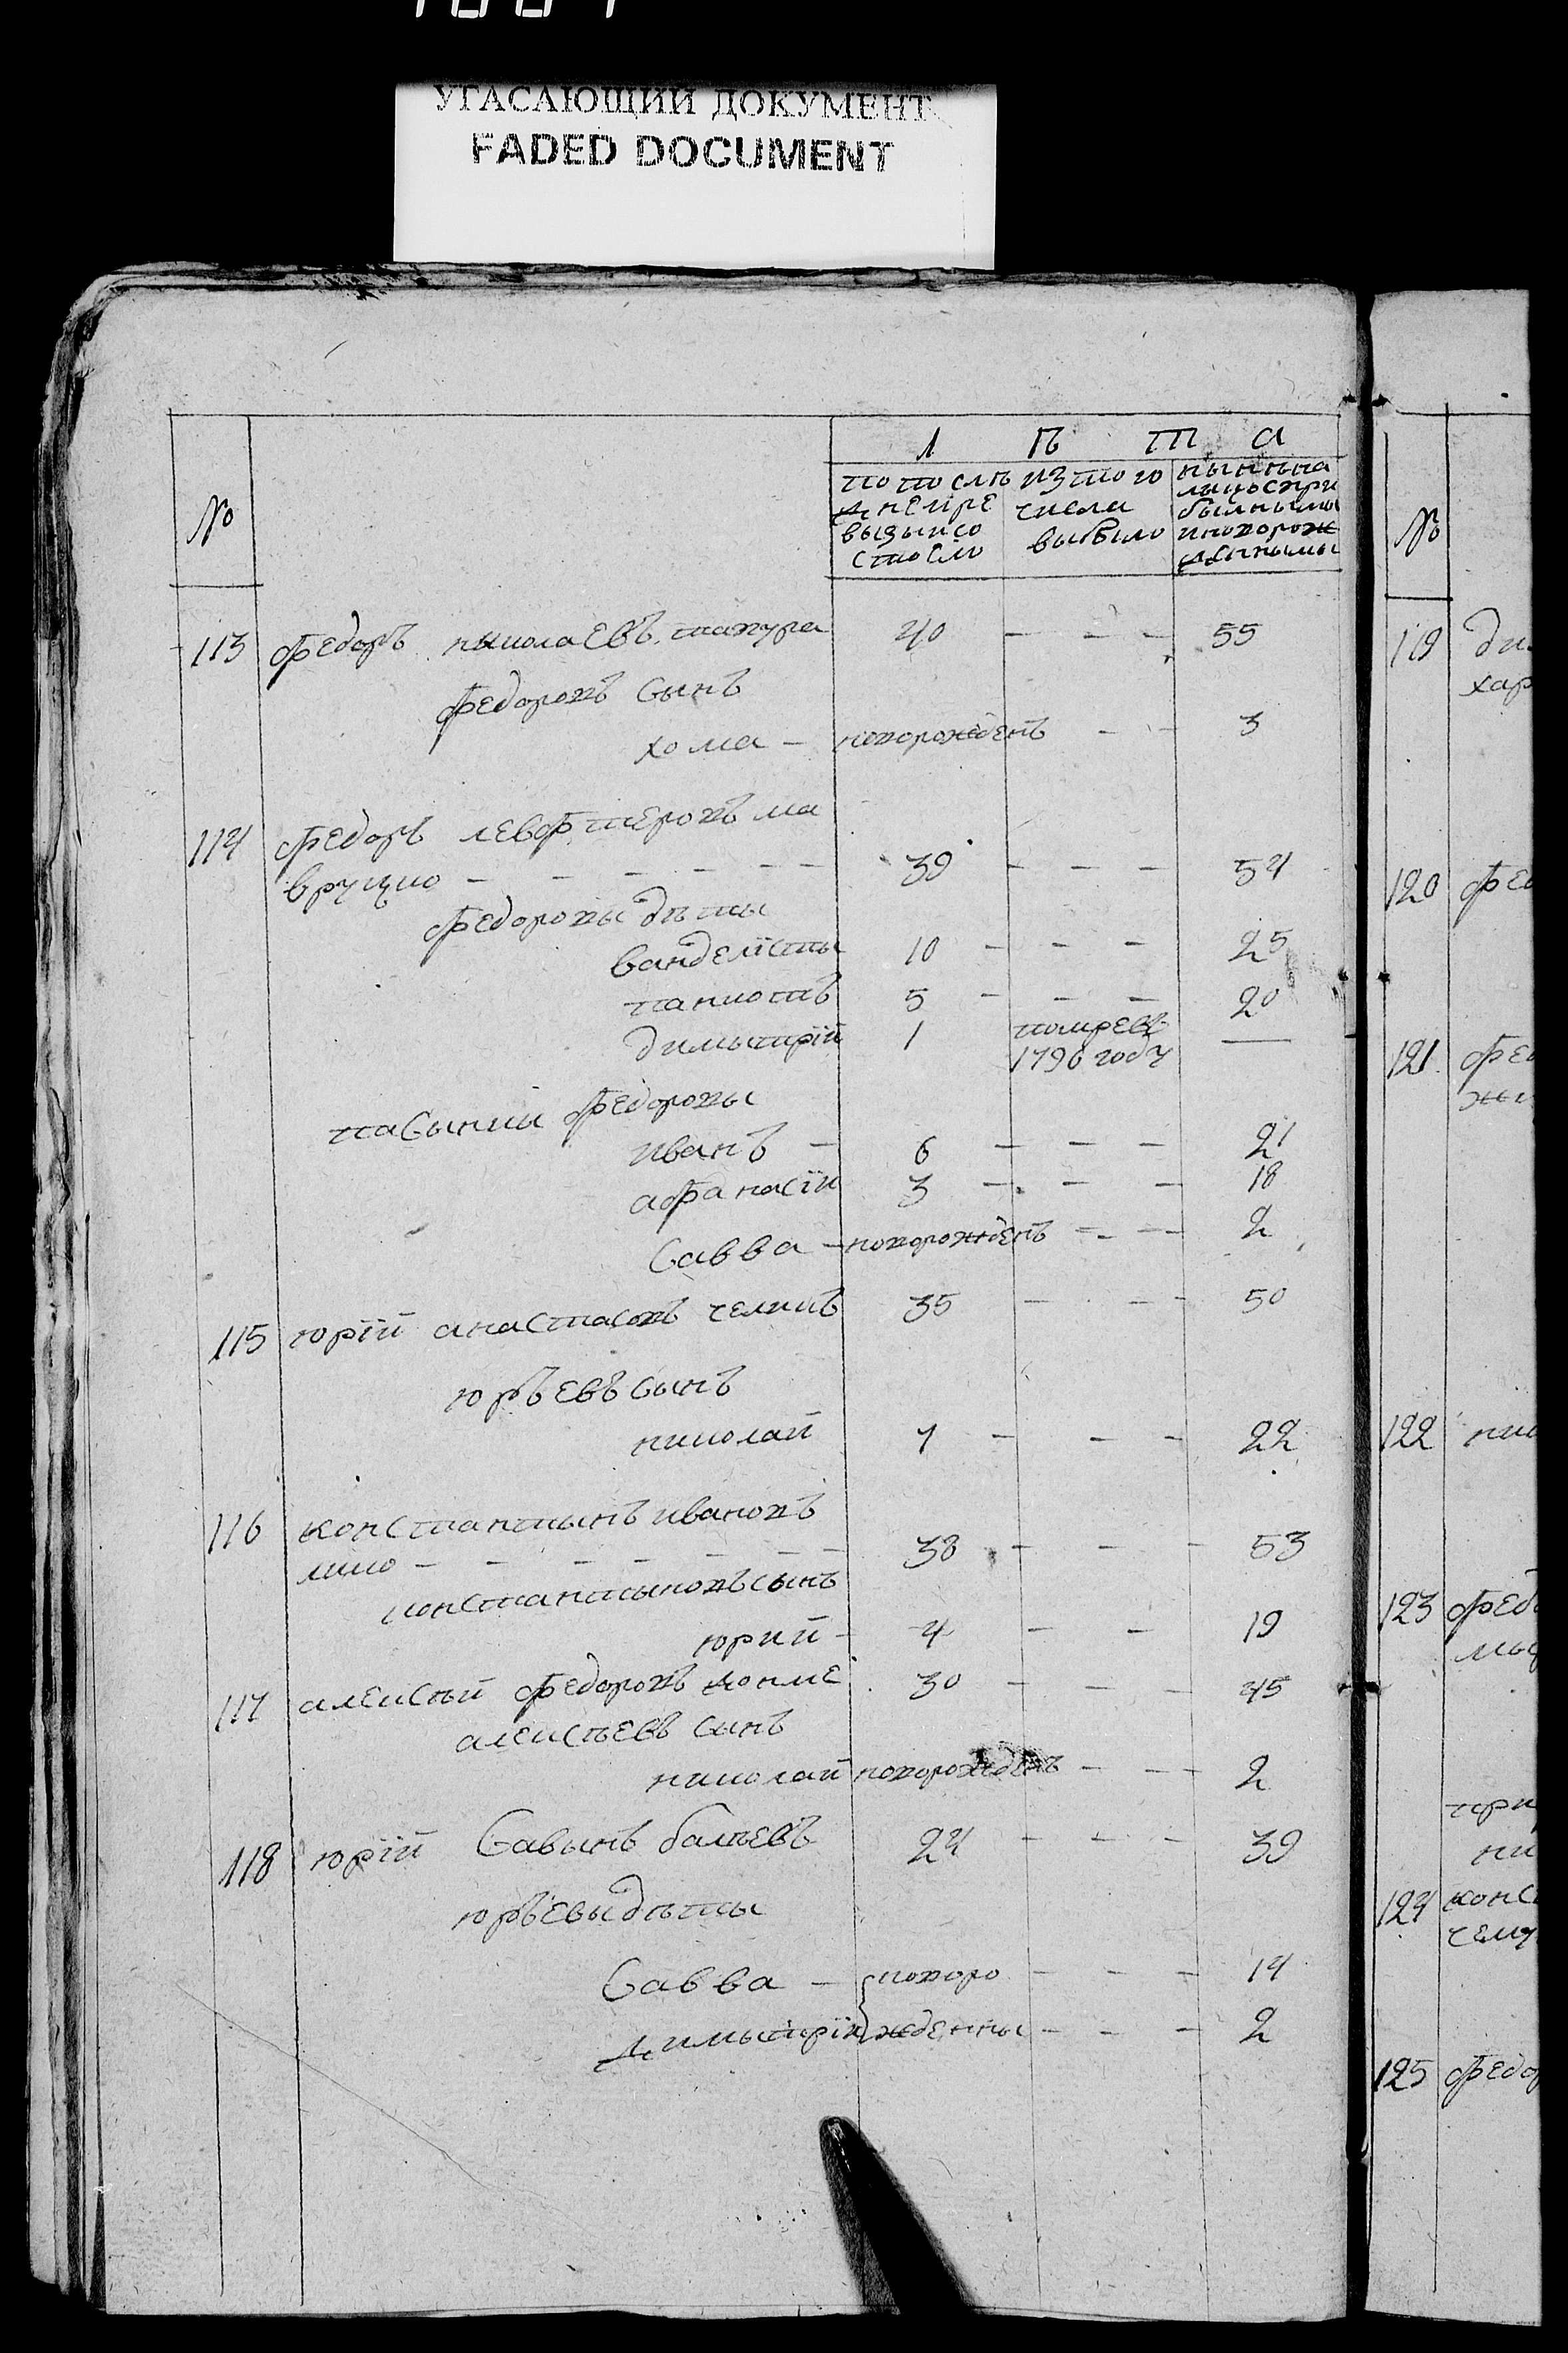 УГАСАЮЩИЙ ДОКУМЕНТ
FADED DOCUMENT
№
Л ѣ т а
по послѣ
дней ре
визыи со
стоело
изтого
числа
выбило
нынѣ на
лицо спри
былными
иноворож
денными
113 Федоръ николаевъ тахура 40 - - - 55
Федоровъ Сынъ
хома - новорожденъ - - 3
114 Федоръ левфтеровъ ма
вруцко - - - - - - 39 - - - 54
Федоровы дѣты
ванделисты 10 - - - 25
панютъ 5 - - - 20
димытрій 1 помре въ
1796 году —
пасынки Федоровы
иванъ - 6 - - - 21
афанасіи 3 - - - 18
Савва - новорожденъ - - - 2
115 юрій анастасовъ челикъ 35 - - - 50
юрьевъ Сынъ
николай 7 - - - 22
116 константынъ ивановъ
- - - - - - 38 - - - 53
константыновъ сынъ
юрий - 4 - - 19
117 алексѣй Федоровъ 30 - - - 45
алексѣевъ Сынъ
николай новорожденъ - - - 2
118 юрій Савынъ балѣевъ 24 - - - 39
юрьевы дѣты
Савва - новоро - - - 14
Димытрій жденны - - - 2
№
119 ди
хар
120 фед
121 фед
жи
122 ник
123 федо
мы
при
ни
124 конс
челу
125 федор